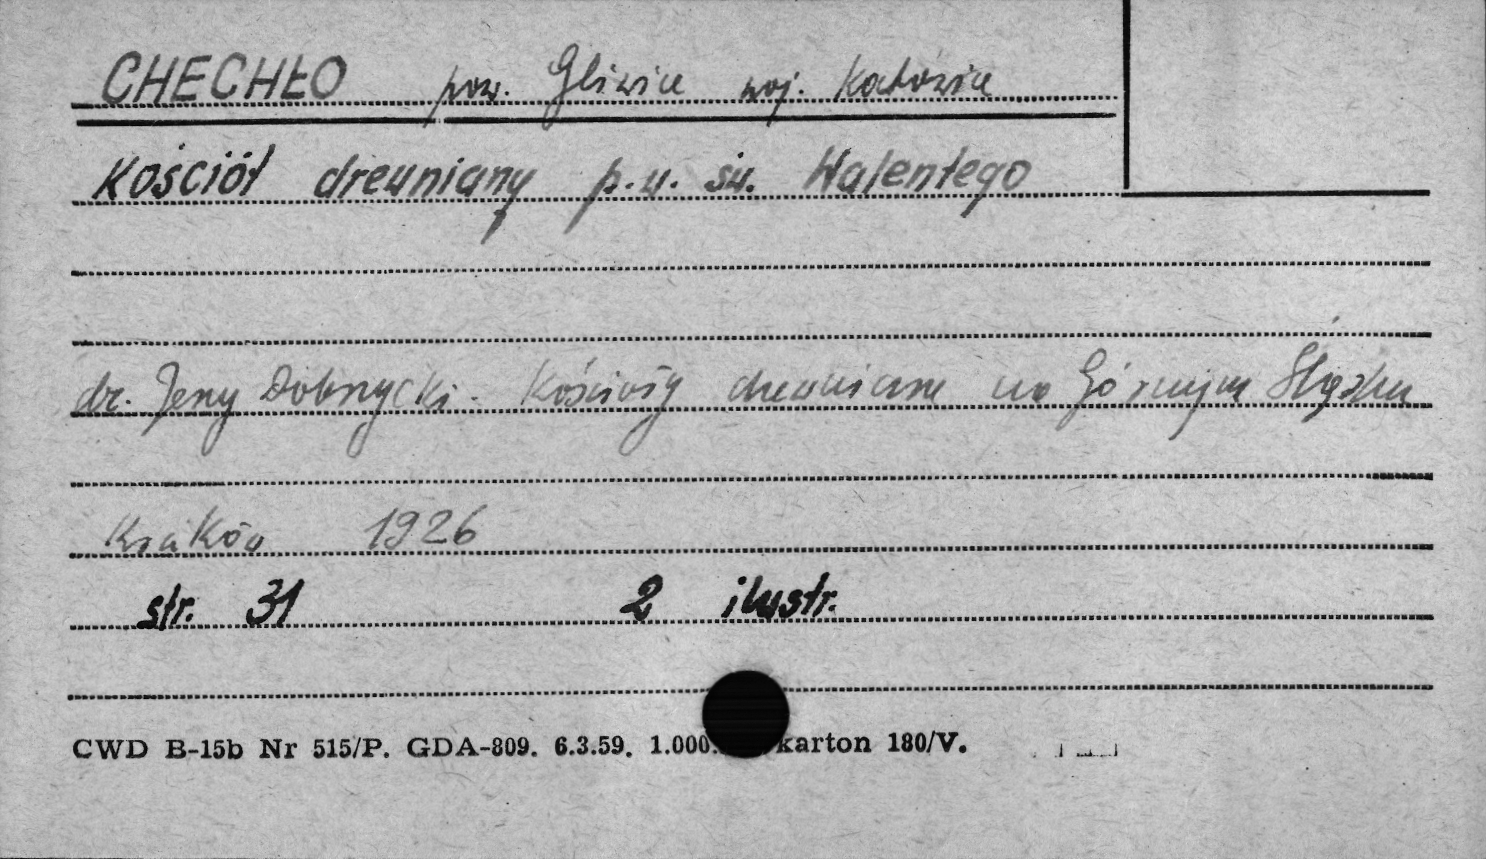 CHECHŁO pow. Gliwice woj. Katowice
Kościół drewniany p.w. św. Walentego
dr. Jerzy Dobrzycki. Kościoły drewniane na Górnym Śląsku
Kraków 1926
str. 31 2 ilustr.
CWD B-15b Nr 515/P. GDA-809. 6.3.59. 1.000. karton 180/V.